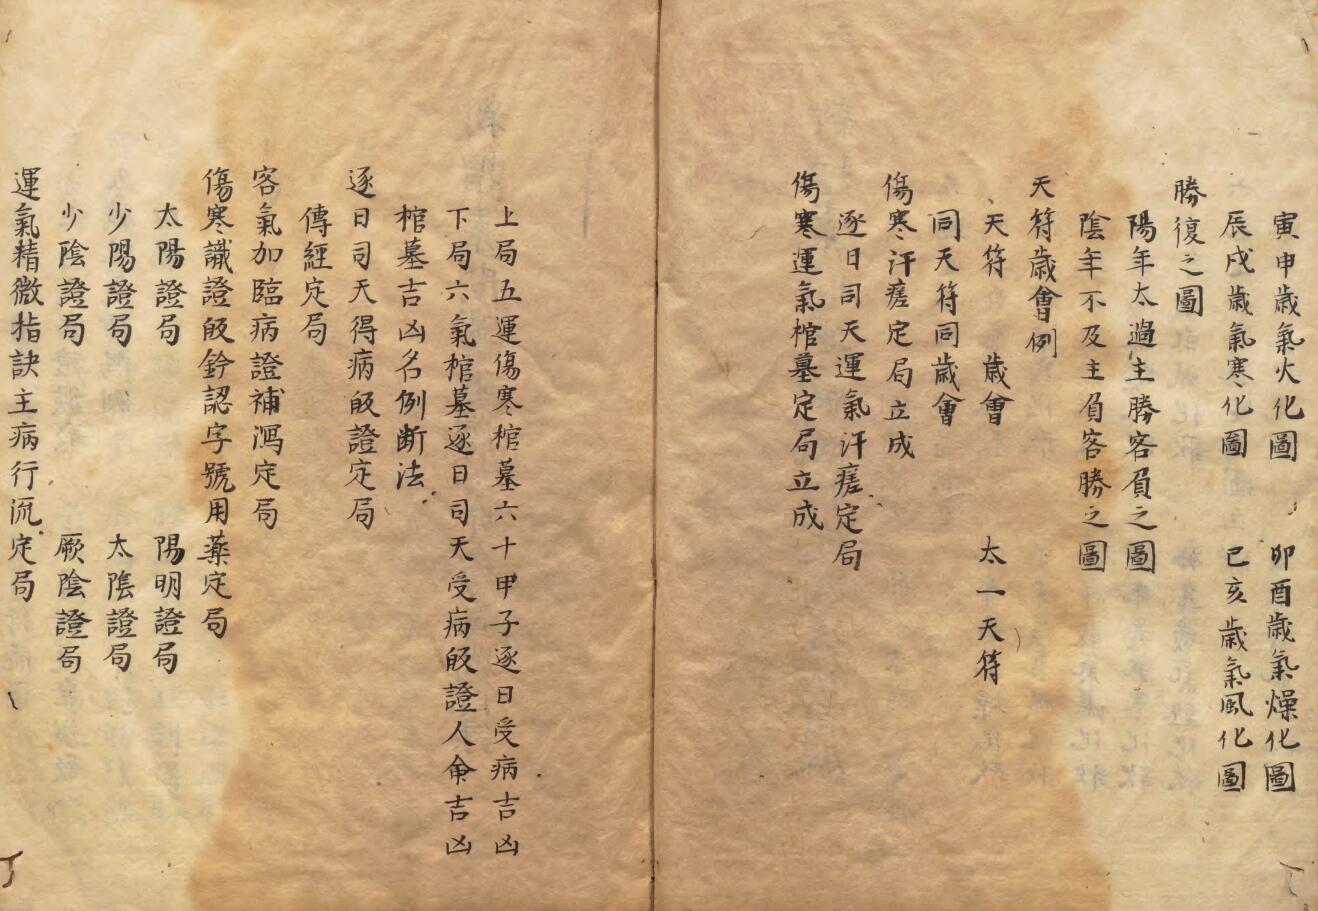 寅申歲氣火化圖 卯酉歲氣燥化圖
辰戌歲氣寒化圖 巳亥歲氣風化圖
勝復之圖
陽年太過主勝客負之圖
陰年不及主負客勝之圖
天符歲會例
天符 歲會 太一天符
同天符同歲會
傷寒汗瘥定局立成
逐日司天運氣汗瘥定局
傷寒運氣棺墓定局立成
上局五運傷寒棺墓六十甲子逐日受病吉凶
下局六氣棺墓逐日司天受病䘑證人命吉凶
棺墓吉凶名例断法
逐日司天得病䘑證定局
傳經定局
客氣加臨病證補瀉定局
傷寒識證䘑鈐認字號用藥定局
太陽證局 陽明證局
少陽證局 太陰證局
少陰證局 厥陰證局
運氣精微指訣主病行流定局